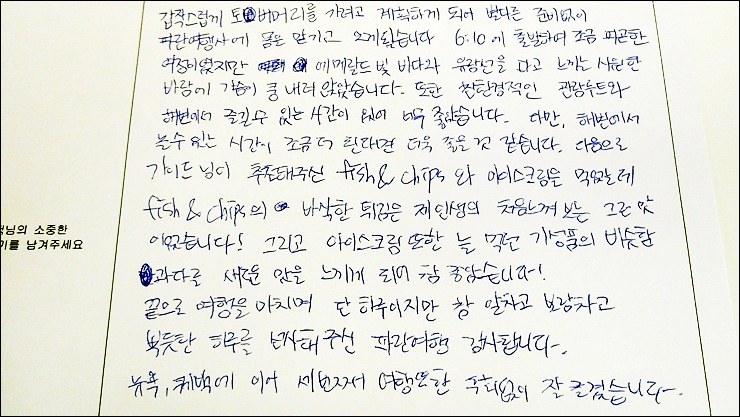 갑작스럽게 토버머리를 가려고 계획하게 되어 별다른 준비없이
파란여행사에 몸을 맡기고 오게됐습니다 6:10에 출발하여 조금 피곤한
여정이었지만 에메랄드 빛 바다와 유람선을 타고 느끼는 시원한
바람에 가슴이 쿵 내려 앉았습니다. 또한 환경적인 관광루트와
해변에서 즐길수 있는 시간이 있어 너무 좋았습니다. 다만, 해변에서
놀수있는 시간이 조금 더 된다면 더욱 좋을 것 같습니다. 다음으로
가이드 님이 추천해주신 fish & chips 와 아이스크림을 먹었는데
fish & chips의 바삭한 튀김은 제 인생의 처음느껴 보는 그런 맛
이었습니다! 그리고 아이스크림 또한 늘 먹던 기성품의 비슷함
과 다르 새로운 맛을 느끼게 되어 참 좋았습니다!
끝으로 여행을 마치며 단 하루이지만 참 알차고 보람차고
뿌듯한 하루를 선사해 주신 파란여행 감사합니다.
뉴욕, 퀘벡에 이어 세번째 여행또한 후회없이 잘 즐겼습니다.
님의 소중한
기를 남겨주세요